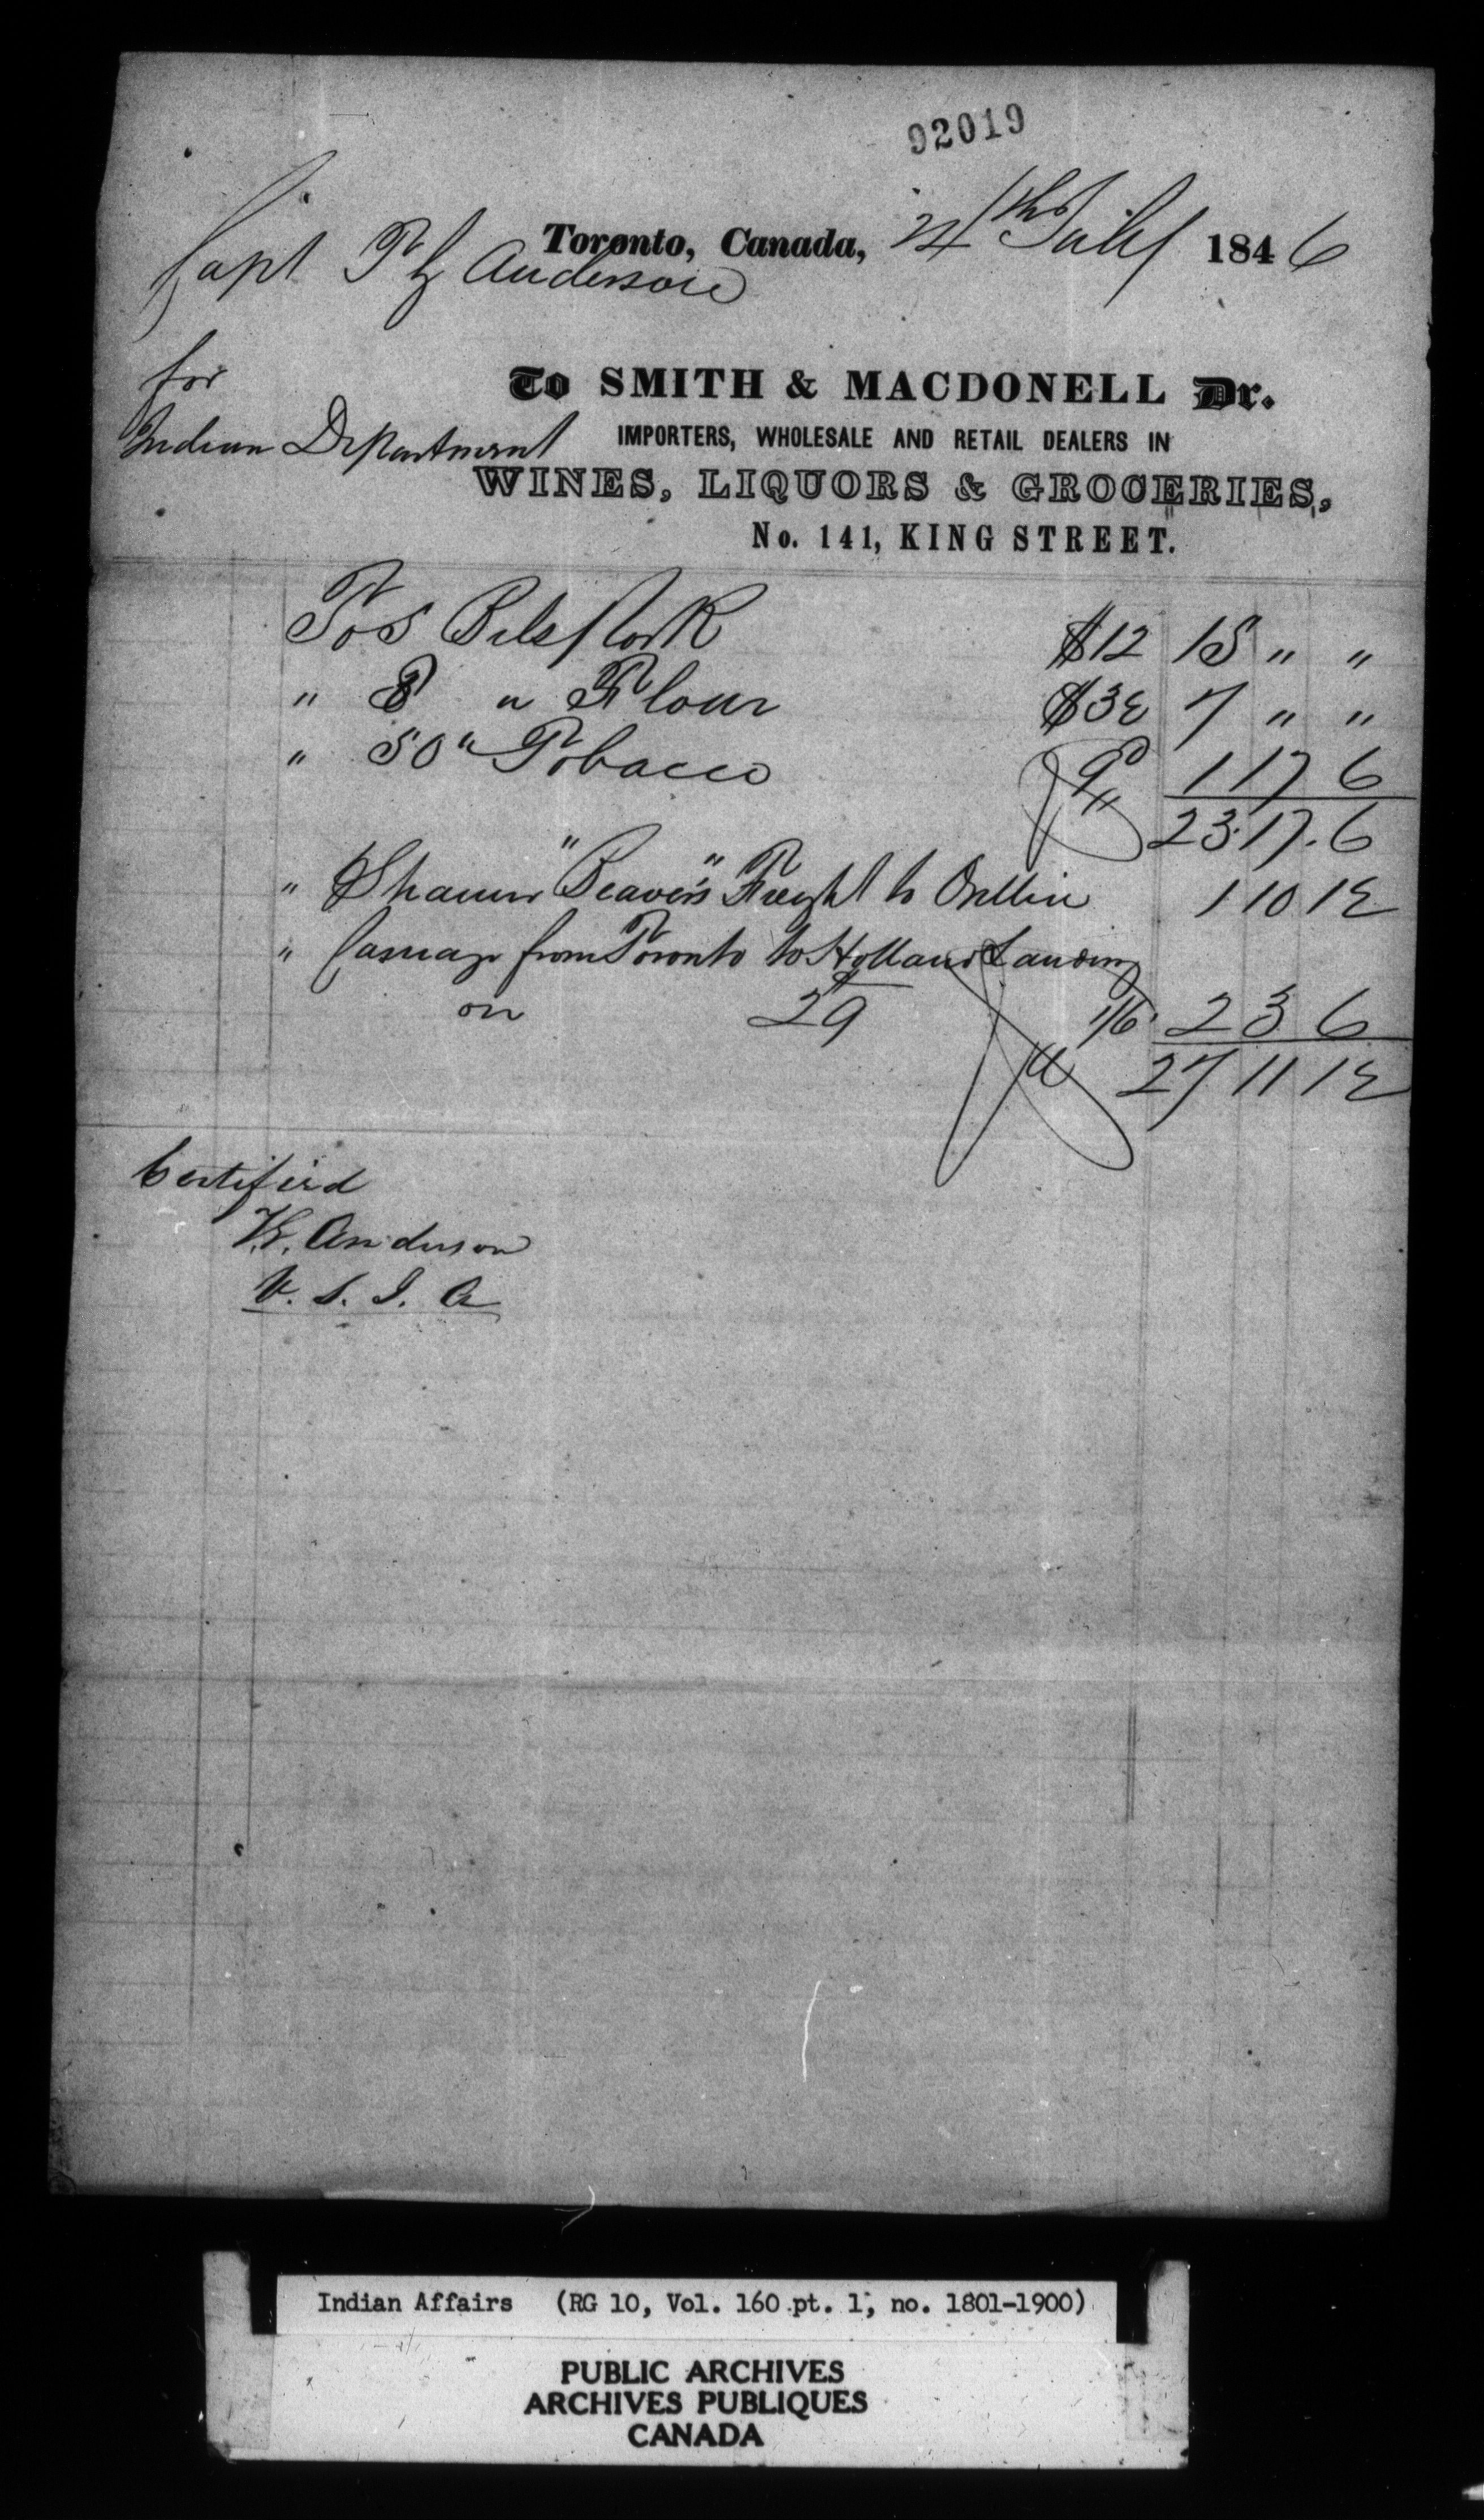 92019
Toronto, Canada, 24th July 1846
Capt T G Anderson
for
Indian Department
To SMITH & MACDONELL Dr.
IMPORTERS, WHOLESALE AND RETAIL DEALERS IN
WINES, LIQUORS & GROCERIES,
No. 141, KING STREET.
To 5 Bbls Pork $12 15 " "
" 8 " Flour $3½ 7 " "
" 50 " Tobacco 9d 1 17 6
23.17.6
" Steamer "Beaver's" Freight to Orillia 1 10 1½
" Carriage from Toronto to Holland Landing
on 29 1/6 2 3 6
27 11 1½
Certified
T.G. Anderson
V. S. I. A
Indian Affairs (RG 10, Vol. 160 pt. 1, no. 1801-1900)
PUBLIC ARCHIVES
ARCHIVES PUBLIQUES
CANADA